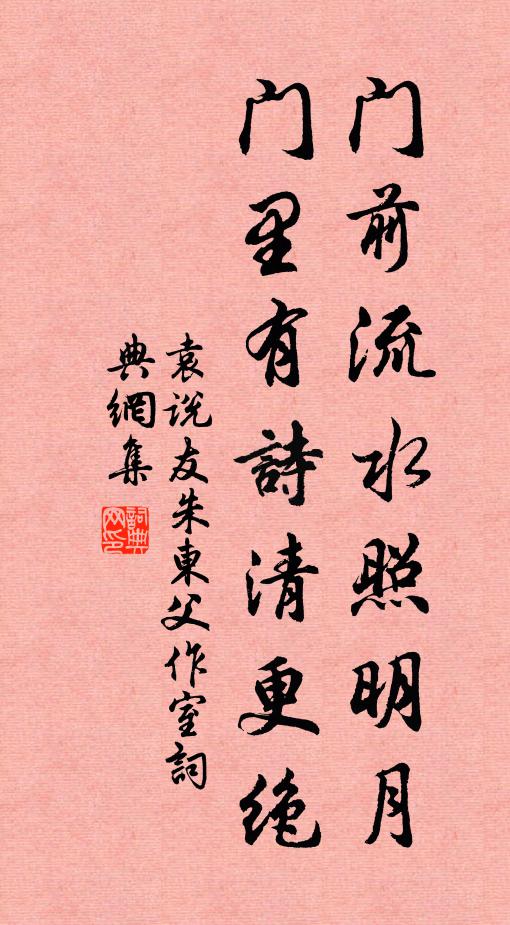 门前流水照明月
门里有詩清更绝
袁説友朱東父作室詞
典網集
詞典网印